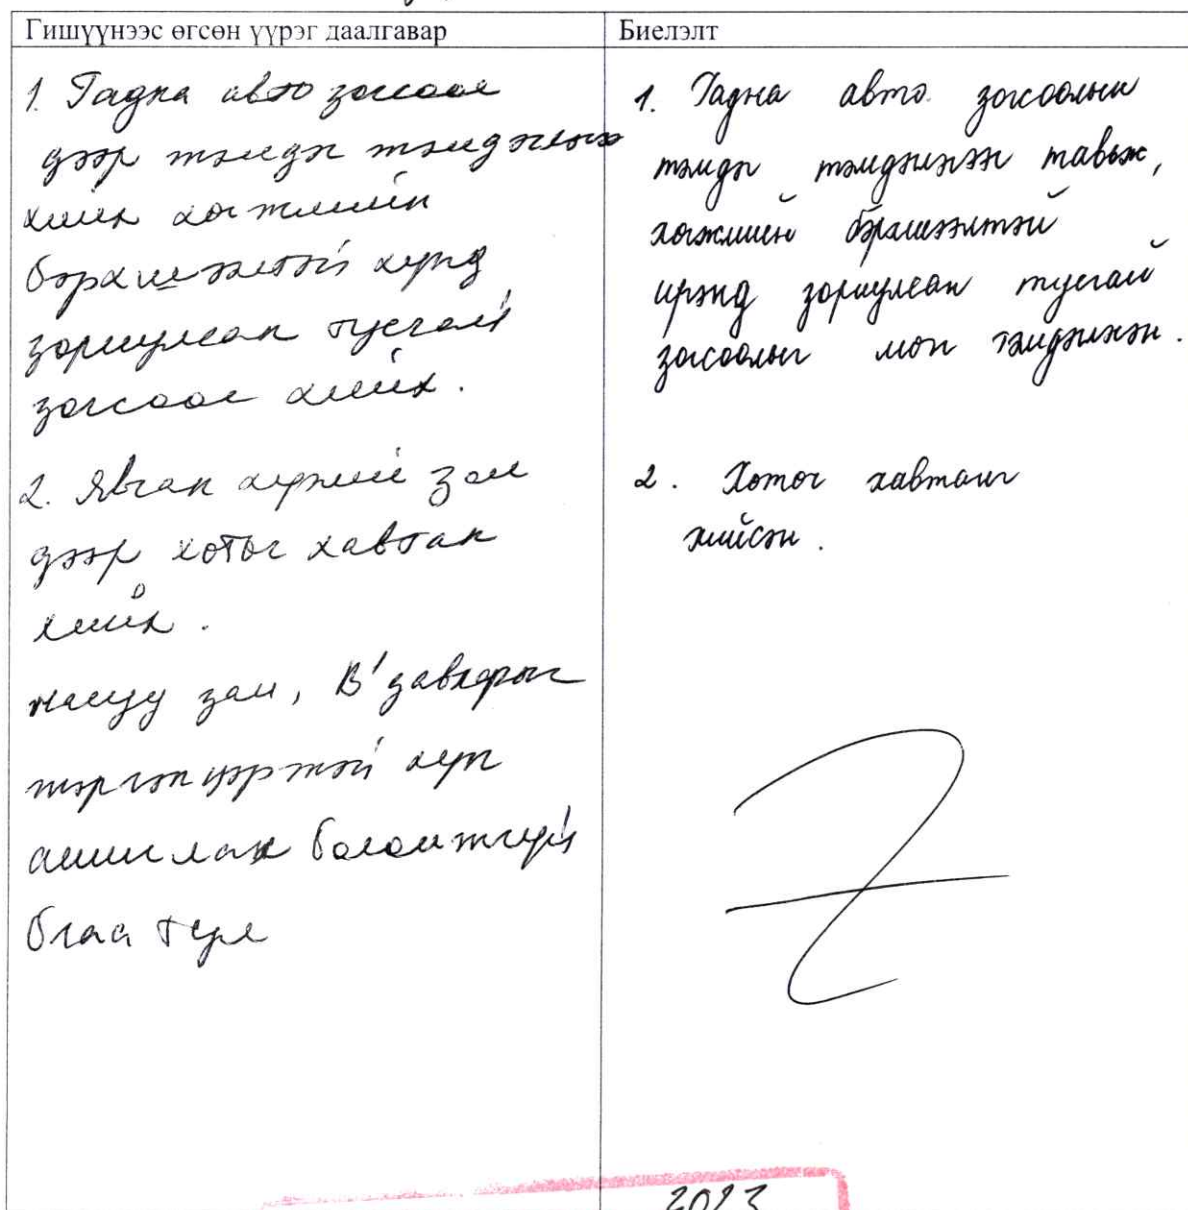 Гишүүнээс өгсөн үүрэг даалгавар
1. Гадна авто зогсоол
дээр тэмдэг тэмдэглэгээ
хийх хөгжлийн
бэрхшээлтэй хүнд
зориулсан тусгай
зогсоол хийх.
2. Явган хүний зам
дээр хотгор хавтан
хийх.
налуу зам, B1 давхарыг
тэргэнцэртэй хүн
ашиглах боломжгүй
бгаа тул
Биелэлт
1. Гадна авто зогсоолын
тэмдэг тэмдэглэгээг тавьж,
хөгжлийн бэрхшээлтэй
иргэнд зориулсан тусгай
зогсоолыг мөн тэмдэглэсэн.
2. Хотгор хавтанг
хийсэн.
2023